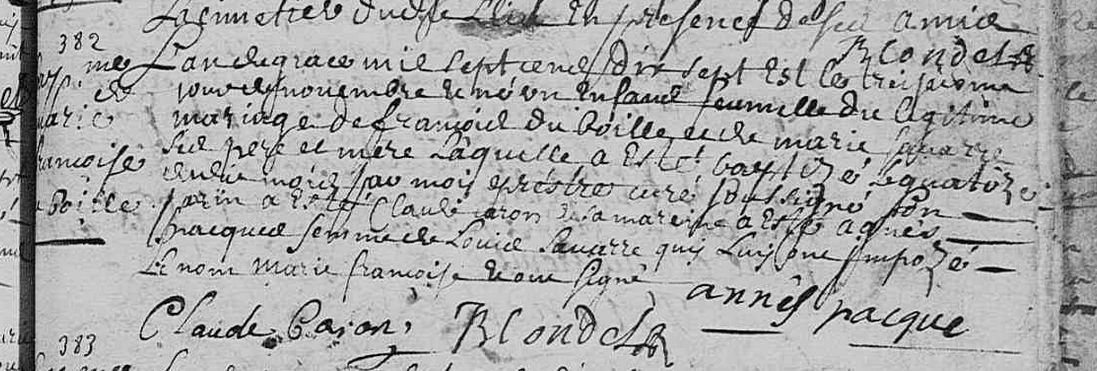 Cimetiere dudit Lieu En presence de ses amis
Blondel
382
Lan de grace mil sept cens dix sept Est le treisieme
jour de novembre Est né un Enfant feumelle du legitime
Marie
mariage de francois du boille et de marie savarre
ses pere et mere Laquelle a Esté baptizé le quatorze
francoise
dudit mois par moy prestre curé soussigné son
du boille
parin a Esté Claude caron et sa mareine a Esté agnes
pacques femme de Louis savarre quy Luy ont Impozé
Le nom marie francoise et ont signé
annés pacque
Claude Caron, Blondel
383